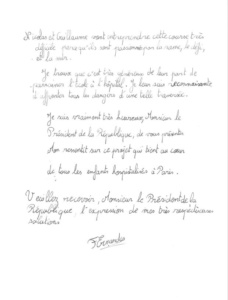 et Guillaume vont entreprendre cette course très
difficile parce qu'ils sont passionnés par la course, le défi,
et la voile.
Je trouve que c'est très généreux de leur part de
permettre l'école à l'hôpital. Je leur suis reconnaissante
d'affronter tous les dangers d'une telle traversée.
Je suis vraiment très heureuse, Monsieur le
Président de la République, de vous présenter
mon ressenti sur ce projet qui tient au cœur
de tous les enfants hospitalisés à Paris.
Veuillez recevoir, Monsieur le Président de la
République l'expression de mes très respectueuses
salutations